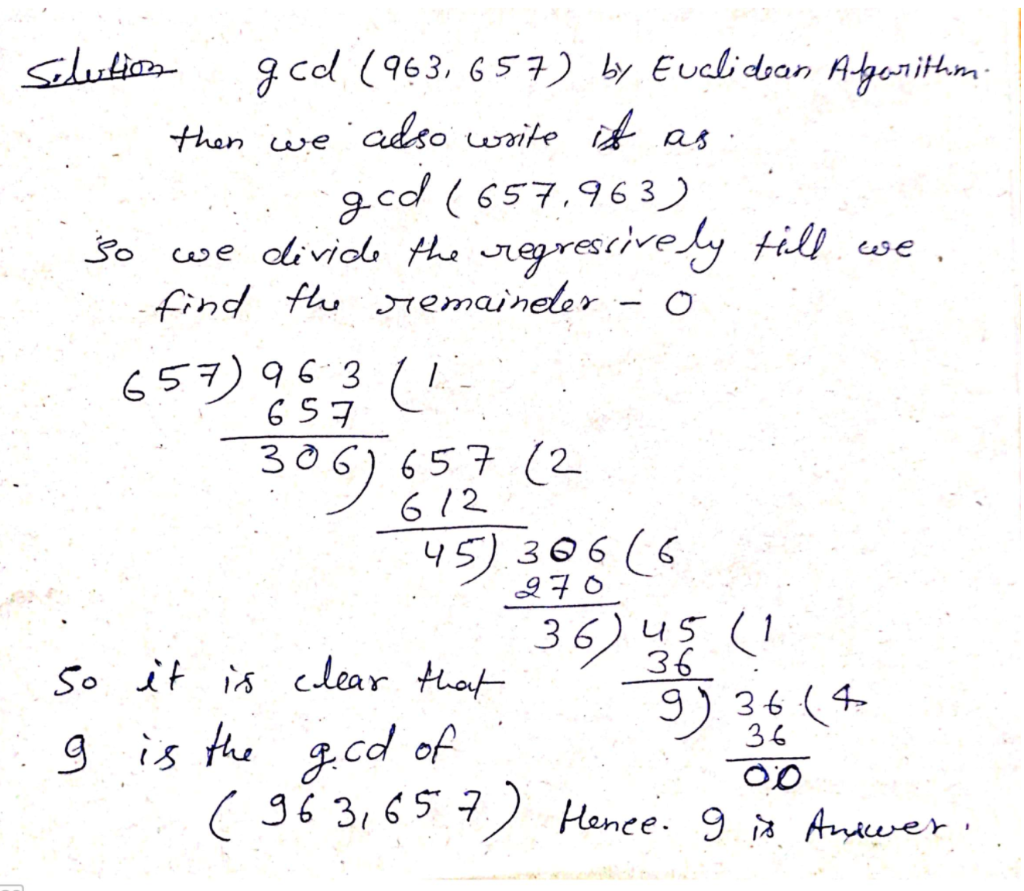 Solution gcd (963, 657) by Euclidean Algorithm.
then we also write it as
gcd (657, 963)
So we divide the regressively till we
find the remainder - 0
657) 963 (1
657
306) 657 (2
612
45) 306 (6
270
36) 45 (1
36
9) 36 (4
36
00
So it is clear that
9 is the g.cd of
(963, 657) Hence. 9 is Answer.